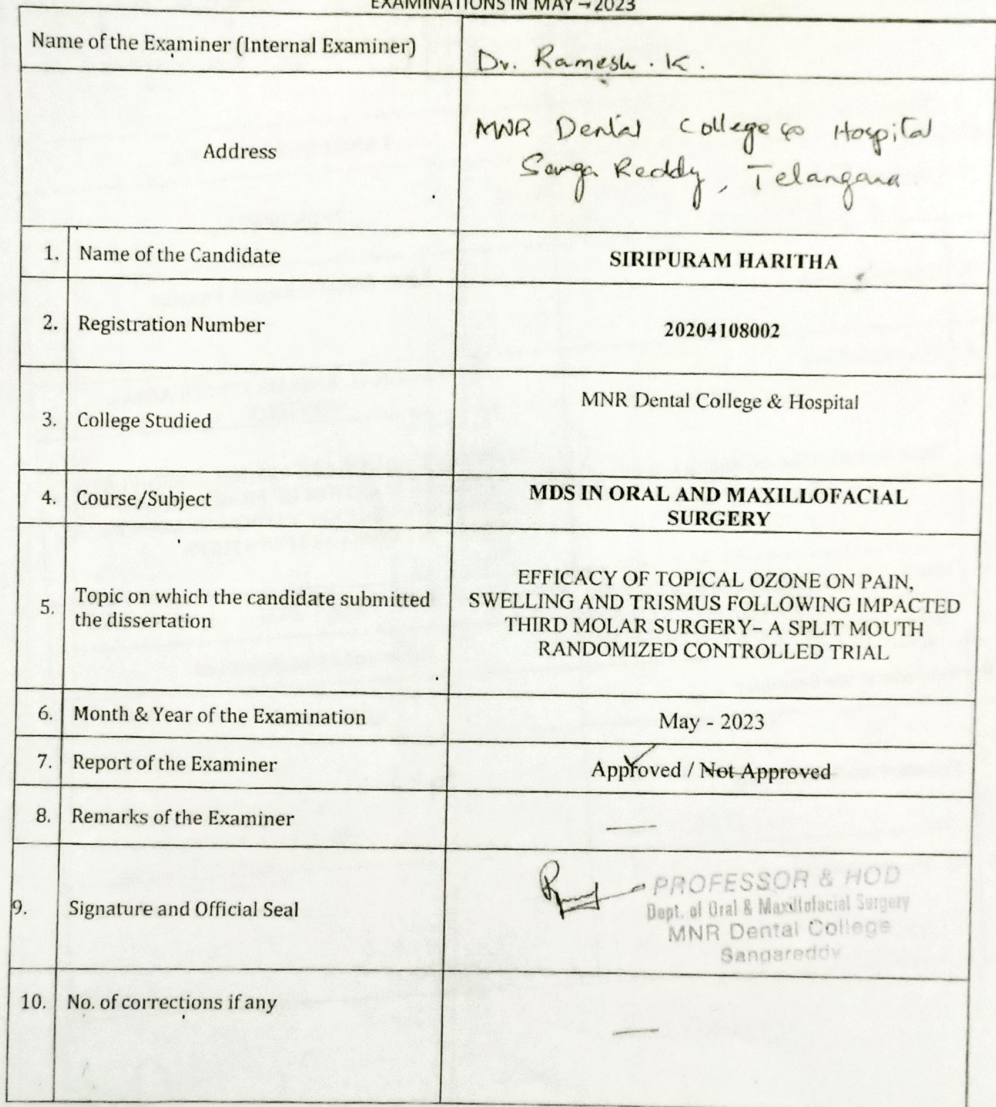 EXAMINATIONS IN MAY – 2023
Name of the Examiner (Internal Examiner)
Dr. Ramesh . K.
Address
MNR Dental College & Hospital
Sanga Reddy, Telangana
1. Name of the Candidate
SIRIPURAM HARITHA
2. Registration Number
20204108002
3. College Studied
MNR Dental College & Hospital
4. Course/Subject
MDS IN ORAL AND MAXILLOFACIAL
SURGERY
5. Topic on which the candidate submitted
the dissertation
EFFICACY OF TOPICAL OZONE ON PAIN,
SWELLING AND TRISMUS FOLLOWING IMPACTED
THIRD MOLAR SURGERY– A SPLIT MOUTH
RANDOMIZED CONTROLLED TRIAL
6. Month & Year of the Examination
May - 2023
7. Report of the Examiner
Approved / Not Approved
8. Remarks of the Examiner
—
9. Signature and Official Seal
PROFESSOR & HOD
Dept. of Oral & Maxillofacial Surgery
MNR Dental College
Sangareddy
10. No. of corrections if any
—